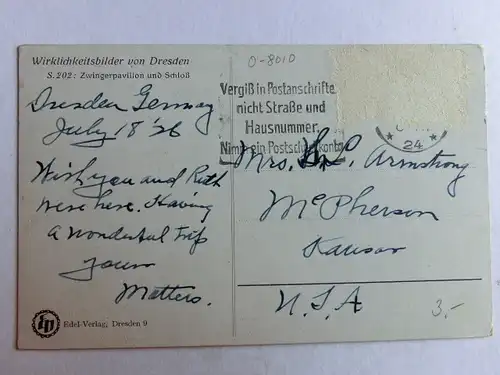 Wirklichkeitsbilder von Dresden
S. 202: Zwingerpavillon und Schloß
Dresden Germany
July 18 '26
Wish you and Ruth
were here. Having
a wonderful trip
Your
Matters.
Edel-Verlag, Dresden 9
0-8010
Vergiß in Postanschriften
nicht Straße und
Hausnummer.
Nimm ein Postscheckkonto
24
Mrs. Armstrong
McPherson
Kansas
U.S.A
3.-